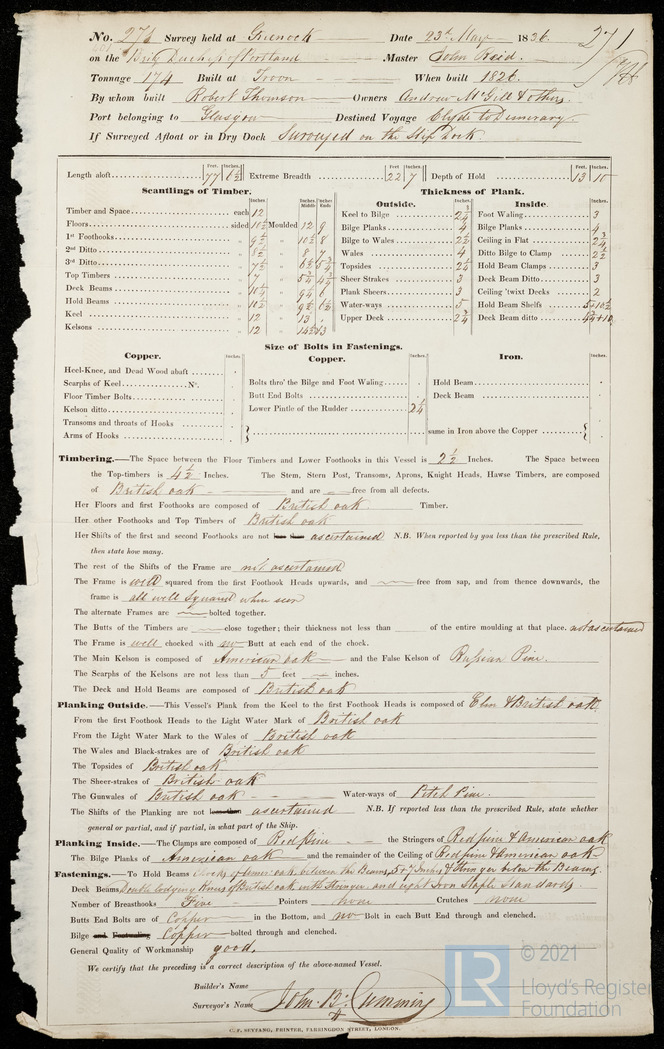 No. 271 Survey held at Greenock Date 23d May 1836 271
on the Brig Duchess of Portland Master John Reid.
Tonnage 174 Built at Troon When built 1826.
By whom built Robert Thomson Owners Andrew McGill & others
Port belonging to Glasgow Destined Voyage Clyde to Demerary
If Surveyed Afloat or in Dry Dock Surveyed on the Slip Dock.
Feet. Inches. Feet Inches. Feet. Inches.
Length aloft 77 6½ Extreme Breadth 22 7 Depth of Hold 13 10
Scantlings of Timber. Thickness of Plank.
Inches Inches Middle Inches Ends Outside. Inches Inside. Inches
Timber and Space each 12 Keel to Bilge 2¾ Foot Waling 3
Floors sided 10½ Moulded 12 9 Bilge Planks 4 Bilge Planks 4
1st Foothooks 9½ " 10½ 8 Bilge to Wales 2½ Ceiling in Flat 2¾
2nd Ditto 8½ " 8 Wales 4 Ditto Bilge to Clamp 2½
3rd Ditto 7½ " Topsides 2½ Hold Beam Clamps 3
Top Timbers 7 " 5¾ 4½ Sheer Strakes 3 Deck Beam Ditto 3
Deck Beams 10¼ " Plank Sheers 3 Ceiling 'twixt Decks 2
Hold Beams 10½ " Water-ways 5 Hold Beam Shelfs
Keel 12 " 13 Upper Deck 2¾ Deck Beam ditto
Kelsons 12 "
Size of Bolts in Fastenings.
Copper. Inches. Copper. Inches. Iron. Inches.
Heel-Knee, and Dead Wood abaft
Scarphs of Keel No. Bolts thro' the Bilge and Foot Waling Hold Beam
Floor Timber Bolts Butt End Bolts Deck Beam
Kelson ditto Lower Pintle of the Rudder 2¼
Transoms and throats of Hooks
Arms of Hooks same in Iron above the Copper
Timbering.—The Space between the Floor Timbers and Lower Foothooks in this Vessel is 2½ Inches. The Space between
the Top-timbers is 4½ Inches. The Stem, Stern Post, Transoms, Aprons, Knight Heads, Hawse Timbers, are composed
of British oak and are free from all defects.
Her Floors and first Foothooks are composed of British oak Timber.
Her other Foothooks and Top Timbers of British oak
Her Shifts of the first and second Foothooks are not less than ascertained N.B. When reported by you less than the prescribed Rule,
then state how many.
The rest of the Shifts of the Frame are not ascertained
The Frame is well squared from the first Foothook Heads upwards, and free from sap, and from thence downwards, the
frame is all well squared when seen
The alternate Frames are bolted together.
The Butts of the Timbers are close together; their thickness not less than of the entire moulding at that place. not ascertained
The Frame is well chocked with no Butt at each end of the chock.
The Main Kelson is composed of American oak and the False Kelson of Russian Pine.
The Scarphs of the Kelsons are not less than 5 feet inches.
The Deck and Hold Beams are composed of British oak
Planking Outside.—This Vessel's Plank from the Keel to the first Foothook Heads is composed of Elm & British oak
From the first Foothook Heads to the Light Water Mark of British oak
From the Light Water Mark to the Wales of British oak
The Wales and Black-strakes are of British oak
The Topsides of British oak
The Sheer-strakes of British oak
The Gunwales of British oak Water-ways of Pitch Pine.
The Shifts of the Planking are not less than ascertained N.B. If reported less than the prescribed Rule, state whether
general or partial, and if partial, in what part of the Ship.
Planking Inside.—The Clamps are composed of Red Pine the Stringers of Red pine & American oak
The Bilge Planks of American oak and the remainder of the Ceiling of Red pine & American oak
Fastenings.—To Hold Beams Chocks of Amer: oak between the Beams,
Deck Beams Double lodging Knees of British oak with Stringer and eight Iron Staple Standards.
Number of Breasthooks Five Pointers none Crutches none
Butts End Bolts are of Copper in the Bottom, and no Bolt in each Butt End through and clenched.
Bilge and Footwaling Copper bolted through and clenched.
General Quality of Workmanship good.
We certify that the preceding is a correct description of the above-named Vessel.
Builder's Name
Surveyor's Name John B: Cumming
C. F. SEYFANG, PRINTER, FARRINGDON STREET, LONDON.
LR © 2021
Lloyd's Register
Foundation